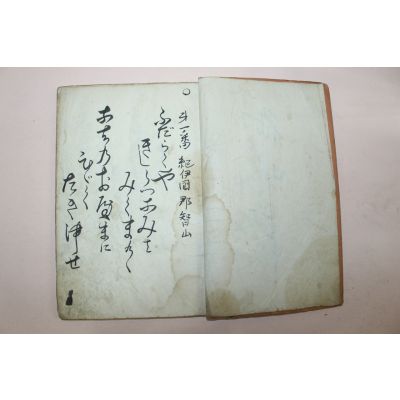 第一番 紀伊国 那智山
ふだらくや
きしうつなみは
みくまのゝ
なちのお山に
ひびく
たき津せ